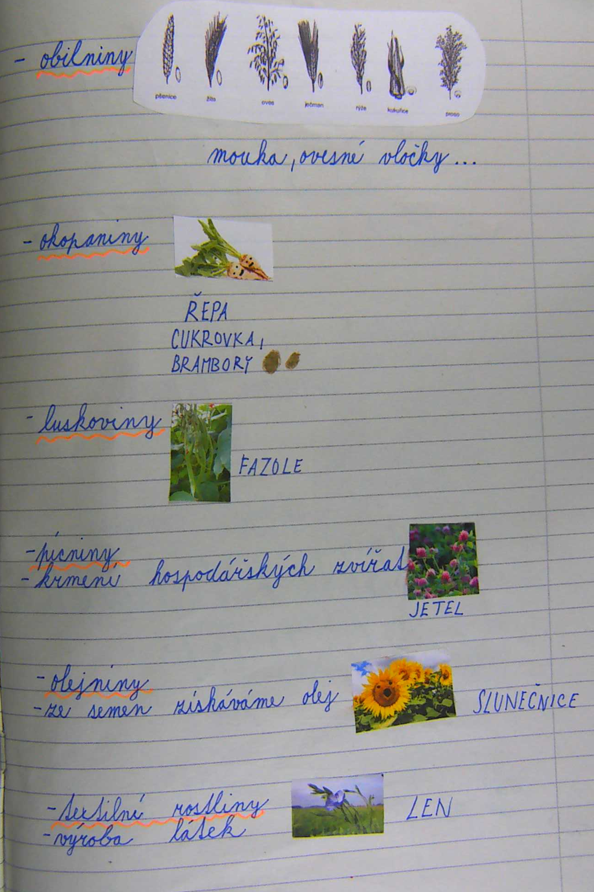 - obilniny
pšenice žito oves ječmen rýže kukuřice proso
mouka, ovesné vločky...
- okopaniny
ŘEPA
CUKROVKA,
BRAMBORY
- luskoviny
FAZOLE
- pícniny
- krmení hospodářských zvířat
JETEL
- olejniny
- ze semen získáváme olej
SLUNEČNICE
- textilní rostliny
- výroba látek
LEN